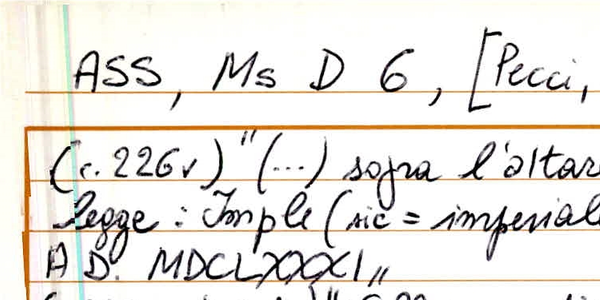 ASS, Ms D 6, [Pecci,
(c. 226v) "(...) sopra l'altar
legge: Imple (sic = imperial
A D. MDCLXXXI,,